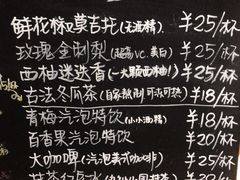 鲜花桥吧莫吉托（无酒精）￥25/杯
玫瑰金刺梨（超高VC.美白）￥25/杯
西柚迷迭香（一大颗西柚！）￥25/杯
古法冬瓜茶（自家熬制 可冻可热）￥18/杯
青梅汽泡特饮（小小酒精）￥18/杯
百香果汽泡特饮￥20/杯
大咖啤（汽泡美式咖啡）￥25/杯